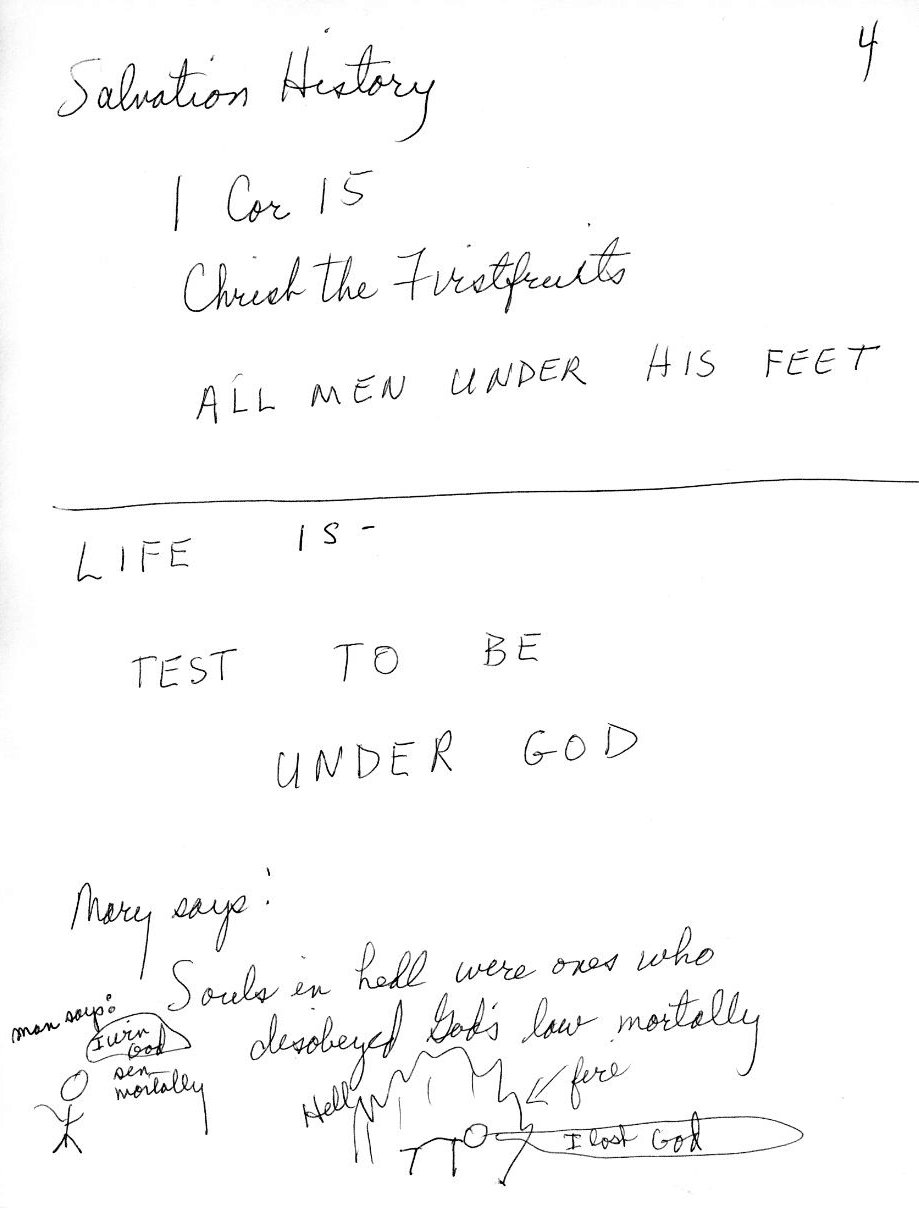 4
Salvation History
1 Cor 15
Christ the Firstfruits
ALL MEN UNDER HIS FEET
LIFE IS-
TEST TO BE
UNDER GOD
Mary says:
Souls in hell were ones who
disobeyed God's law mortally
man says:
God
sin
mortally
Hell
fire
I lost God